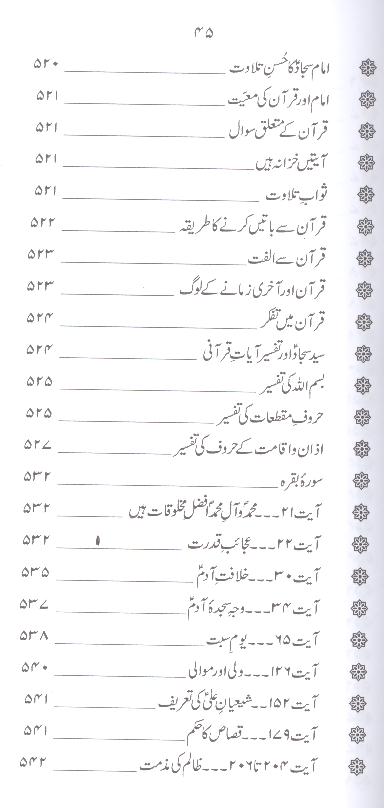 ۴۵
امام سجادؑ کا حُسنِ تلاوت ۵۲۰
امام اور قرآن کی معیّت ۵۲۱
قرآن کے متعلق سوال ۵۲۱
آیتیں خزانہ ہیں ۵۲۱
ثوابِ تلاوت ۵۲۱
قرآن سے باتیں کرنے کا طریقہ ۵۲۲
قرآن سے الفت ۵۲۳
قرآن اور آخری زمانے کے لوگ ۵۲۳
قرآن میں تفکر ۵۲۴
سید سجادؑ اور تفسیر آیاتِ قرآنی ۵۲۴
بسم اللہ کی تفسیر ۵۲۵
حروف مقطعات کی تفسیر ۵۲۵
اذان و اقامت کے حروف کی تفسیر ۵۲۷
سورۂ بقرہ ۵۳۲
آیت ۲۱۔۔۔محمدؐ و آلِ محمدؐ افضل مخلوقات ہیں ۵۳۲
آیت ۲۲۔۔۔عجائب قدرت ۵۳۲
آیت ۳۰۔۔۔خلافتِ آدمؑ ۵۳۵
آیت ۳۴۔۔۔وجہِ سجدۂ آدمؑ ۵۳۷
آیت ۶۵۔۔۔یومِ سبت ۵۳۸
آیت ۱۲۶۔۔۔ولی اور موالی ۵۴۰
آیت ۱۵۲۔۔۔شیعیانِ علیؑ کی تعریف ۵۴۱
آیت ۱۷۹۔۔۔قصاص کا حکم ۵۴۱
آیت ۲۰۴ تا ۲۰۶۔۔۔ظالم کی مذمت ۵۴۲